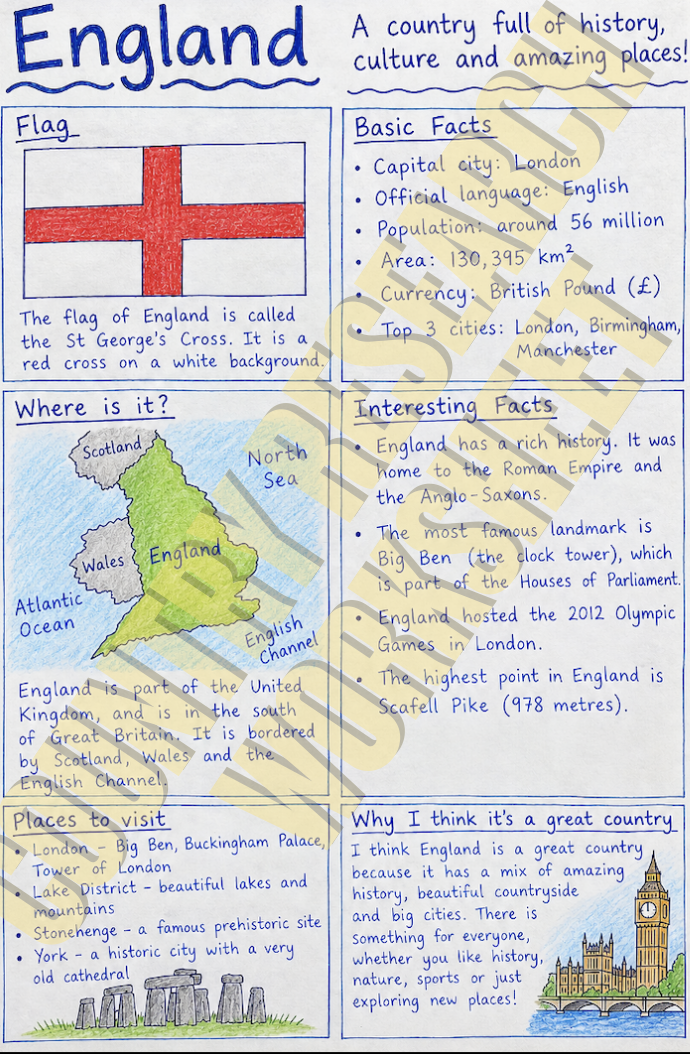 England
A country full of history,
culture and amazing places!
Flag
The flag of England is called
the St George's Cross. It is a
red cross on a white background.
Basic Facts
• Capital city: London
• Official language: English
• Population: around 56 million
• Area: 130,395 km²
• Currency: British Pound (£)
• Top 3 cities: London, Birmingham,
Manchester
Where is it?
Scotland
North
Sea
Wales
England
Atlantic
Ocean
English
Channel
England is part of the United
Kingdom, and is in the south
of Great Britain. It is bordered
by Scotland, Wales and the
English Channel.
Interesting Facts
• England has a rich history. It was
home to the Roman Empire and
the Anglo-Saxons.
• The most famous landmark is
Big Ben (the clock tower), which
is part of the Houses of Parliament.
• England hosted the 2012 Olympic
Games in London.
• The highest point in England is
Scafell Pike (978 metres).
Places to visit
• London – Big Ben, Buckingham Palace,
Tower of London
• Lake District – beautiful lakes and
mountains
• Stonehenge – a famous prehistoric site
• York – a historic city with a very
old cathedral
Why I think it's a great country
I think England is a great country
because it has a mix of amazing
history, beautiful countryside
and big cities. There is
something for everyone,
whether you like history,
nature, sports or just
exploring new places!
COUNTRY RESEARCH
WORKSHEET